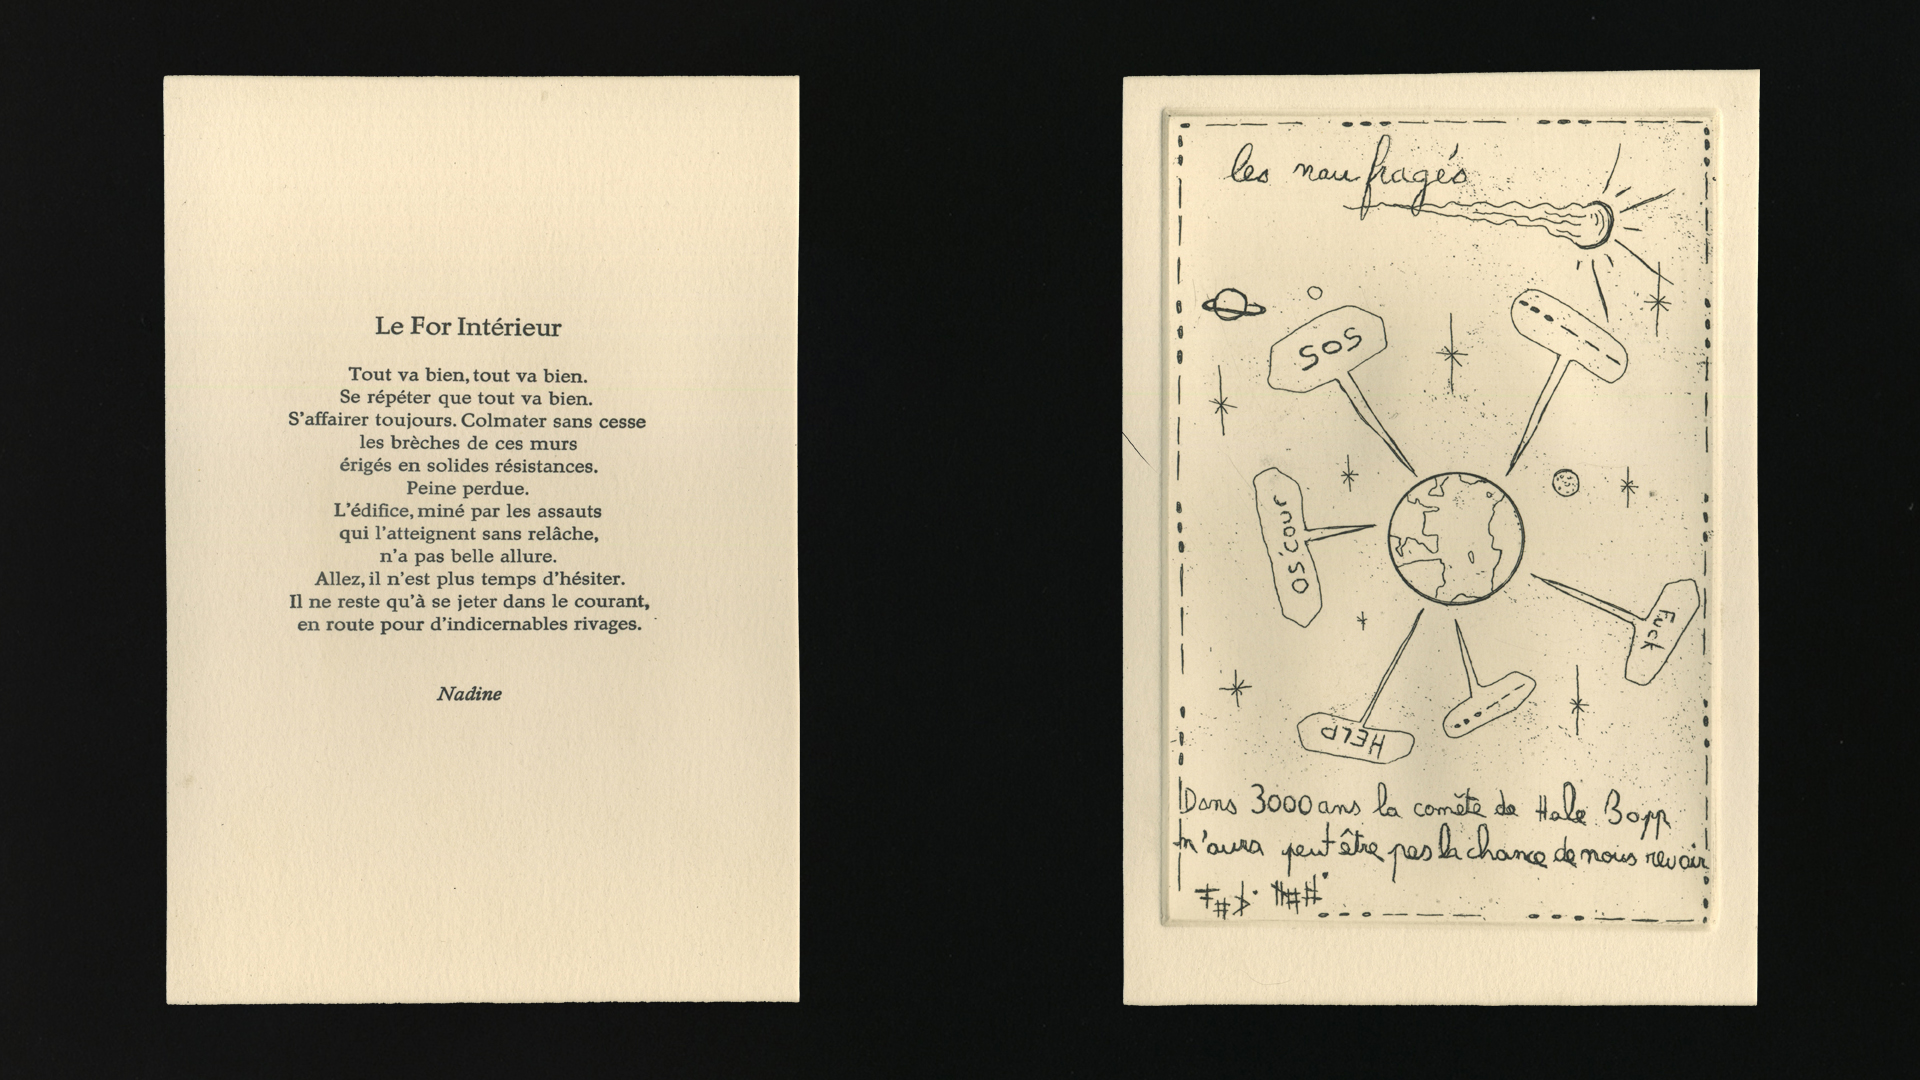 Le For Intérieur
Tout va bien, tout va bien.
Se répéter que tout va bien.
S'affairer toujours. Colmater sans cesse
les brèches de ces murs
érigés en solides résistances.
Peine perdue.
L'édifice, miné par les assauts
qui l'atteignent sans relâche,
n'a pas belle allure.
Allez, il n'est plus temps d'hésiter.
Il ne reste qu'à se jeter dans le courant,
en route pour d'indicernables rivages.
Nadine
les naufragés
SOS
... ---
OS'cour
Fuck
HELP
... ---
Dans 3000 ans la comète de Hale Bopp
n'aura peut être pas la chance de nous revoir